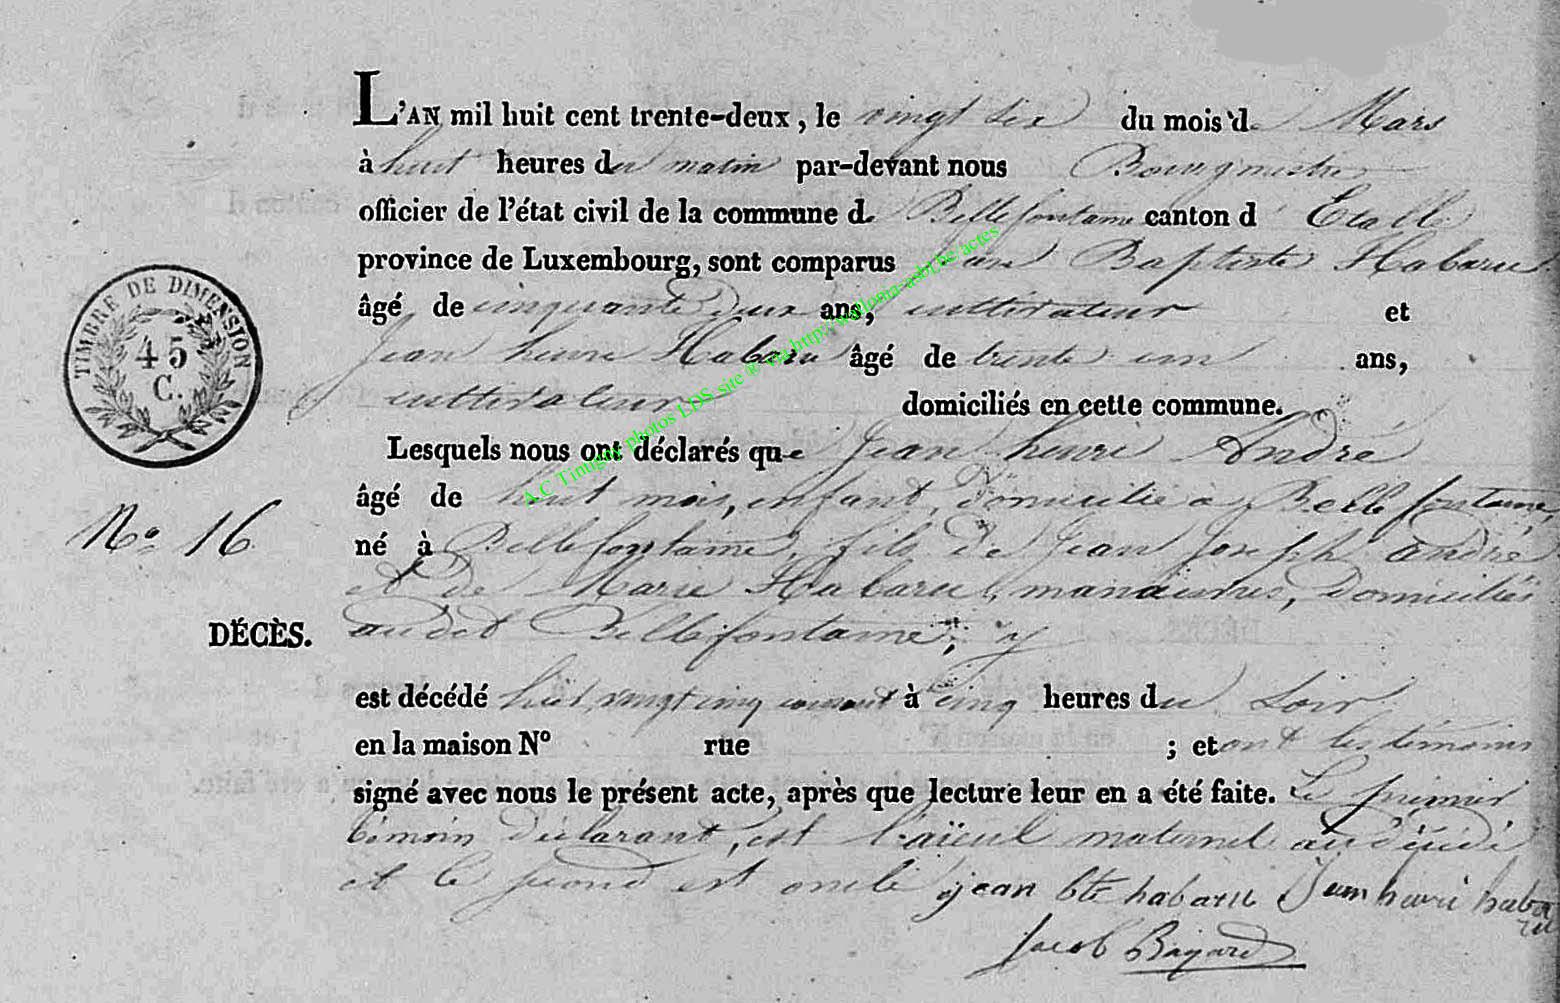 L'AN mil huit cent trente-deux, le vingt six du mois de Mars
à huit heures du matin par-devant nous Bourgmestre
officier de l'état civil de la commune de Bellefontaine canton d'Etalle
province de Luxembourg, sont comparus Jean Baptiste Habaru
âgé de cinquante deux ans, cultivateur et
Jean henri Habaru âgé de trente un ans,
cultivateur domiciliés en cette commune.
Lesquels nous ont déclarés que Jean henri André
âgé de huit mois, enfant, domicilié à Bellefontaine,
né à Bellefontaine, fils de Jean Joseph andré
et de Marie Habaru, manoeuvres, domiciliés
audit Bellefontaine, y
est décédé vingt cinq courant à cinq heures du soir
en la maison Nº rue ; et ont les témoins
signé avec nous le présent acte, après que lecture leur en a été faite. Le premier
témoin déclarant, est l'aïeul maternel au décédé
et le second est oncle jean bte habaru Jean henri habaru
Jacob Bagard
TIMBRE DE DIMENSION
45
C.
No 16
DÉCÈS.
A.C Tintigny photos LDS site ® via http://wallonia-asbl.be/actes